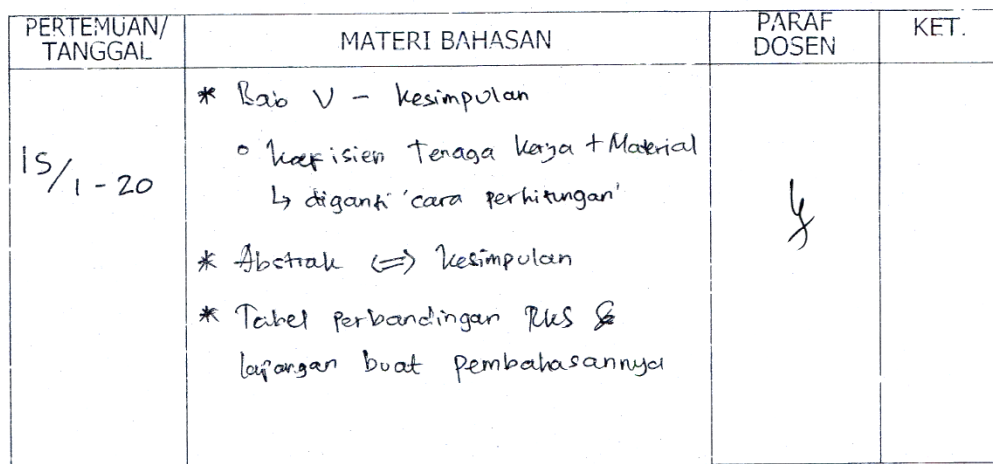 PERTEMUAN/
TANGGAL
MATERI BAHASAN
PARAF
DOSEN
KET.
15/1-20
* Bab V - Kesimpulan
° Koefisien Tenaga Kerja + Material
↳ diganti 'cara perhitungan'
* Abstrak ⇔ Kesimpulan
* Tabel perbandingan RKS &
lapangan buat pembahasannya